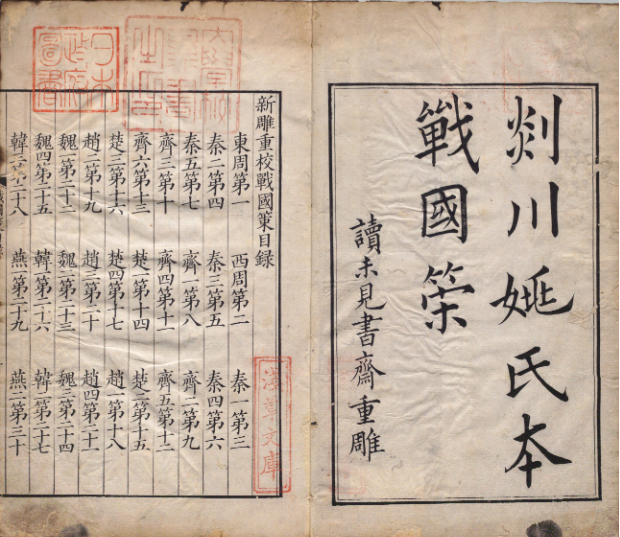 剡川姚氏本
戰國筞
讀未見書齋重雕
新雕重校戰國策目録
東周第一 西周第二 秦一第三
秦二第四 秦三第五 秦四第六
秦五第七 齊一第八 齊二第九
齊三第十 齊四第十一 齊五第十二
齊六第十三 楚一第十四 楚二第十五
楚三第十六 楚四第十七 趙一第十八
趙二第十九 趙三第二十 趙四第二十一
魏一第二十二 魏二第二十三 魏三第二十四
魏四第二十五 韓一第二十六 韓二第二十七
韓三第二十八 燕一第二十九 燕二第三十
淺草文庫
日本政府圖書